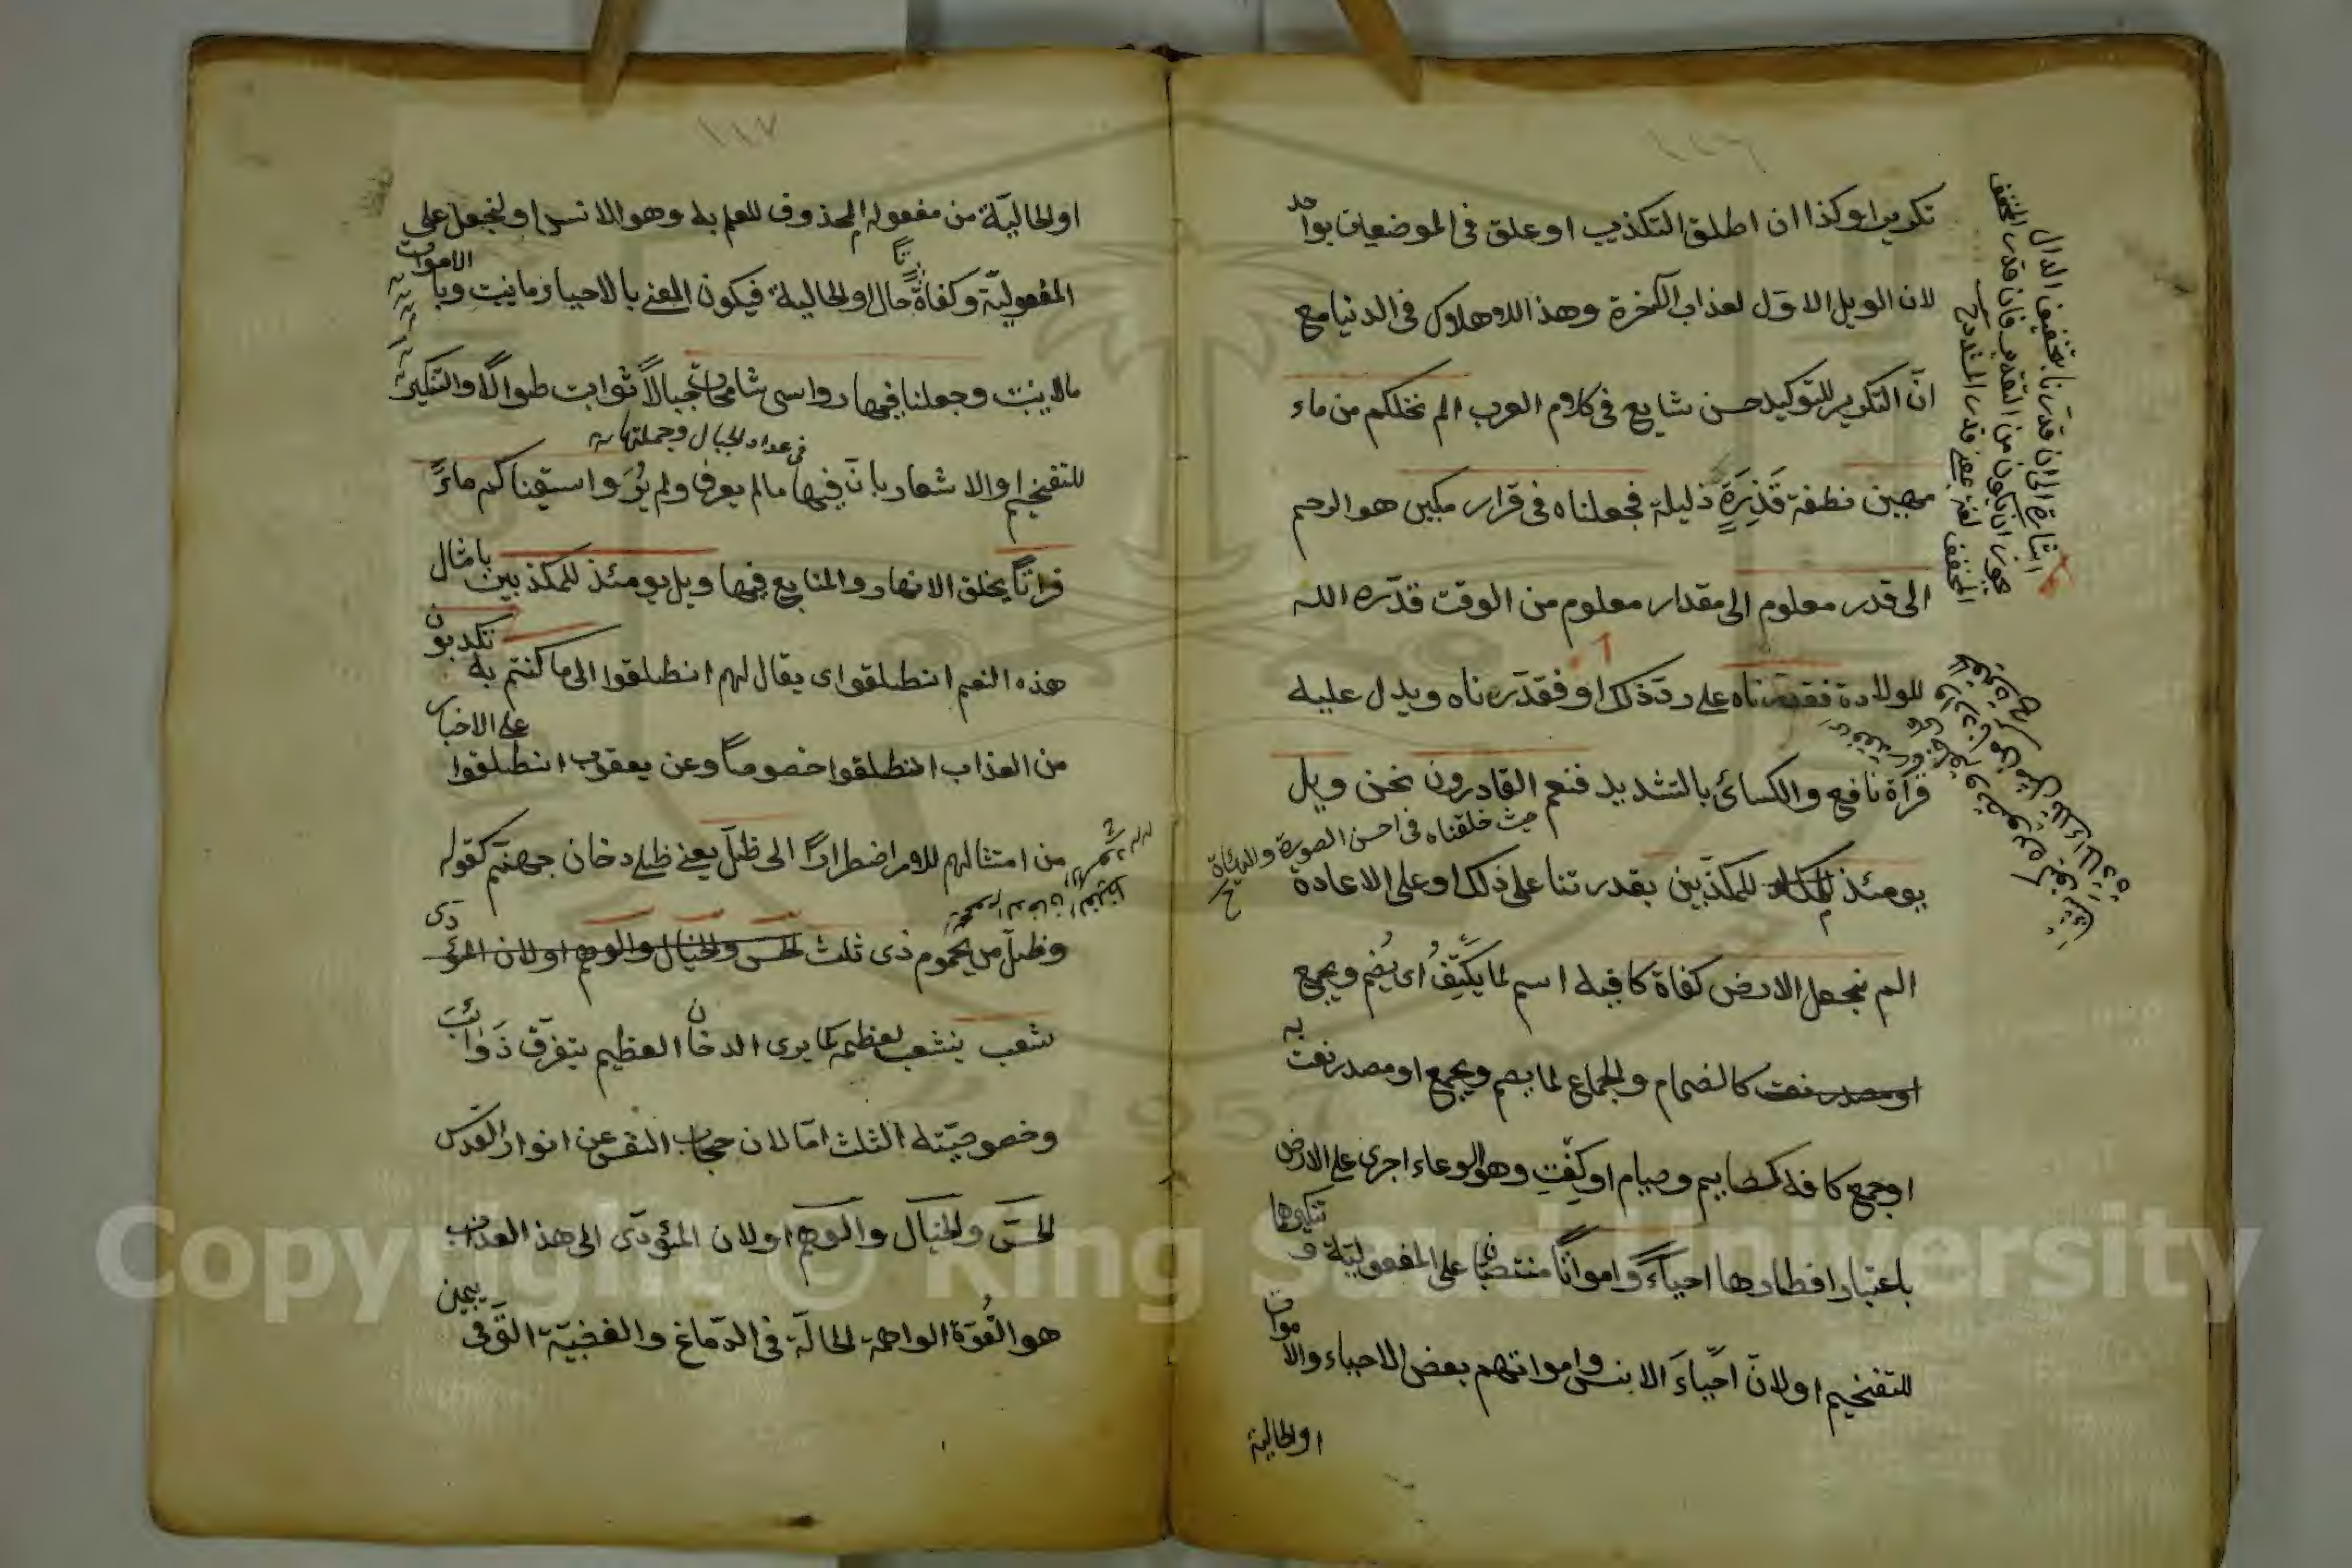 ١١٦
تكريرا وكذا ان اطلق التكذيب او علق فى الموضعين بواحد
لان الويل الاول لعذاب الآخرة وهذا للاهلاك فى الدنيا مع
انّ التكرير للتوكيد حسن شايع فى كلام العرب الم نخلقكم من ماء
مهين نطفة قَذِرَةٍ ذليلة فجعلناه فى قرار مكين هو الرحم
الى قدر معلوم الى مقدار معلوم من الوقت قدّره الله
للولادة فقدرناه على ذلك او فقدّرناه ويدل عليه
قرأة نافع والكسائى بالتشديد فنعم القادرون نحن ويل
حيث خلقناه فى احسن الصورة والهيئاة
يومئذ للمكذّبين بقدرتنا على ذلك او على الاعادة
الم نجعل الارض كفاة كافية اسم لما يكفت اى يضم ويجمع
او مصدر نعت كالضمام والجماع لما يضم ويجمع او مصدر نعت به
او جمع كافة كصايم وصيام او كِفْتٍ وهو الوعاء اجرى على الارض
باعتبار اقطارها احياءً وامواتًا منتصبان على المفعولية و تنكيرها
للتفخيم او لان احياءَ الانس وامواتهم بعض الاحياء والاموات
او الحالية
اشارة الى ان قدرنا بتخفيف الدال
يجوز ان يكون من التقدير فان قدر المخفف
المخفف لغة بمعنى قدر المشدد
١١٧
او الحاليّة من مفعوله المحذوف للعلم به وهو الانس او لنجعل على
المفعوليّة وكفاتًا حال او الحالية فيكون المعنى بالاحياء ما ينبت وبالاموات
مالا ينبت وجعلنا فيها رواسى شامخات جبالاً ثوابت طوالاً والتنكير
فى عداد الجبال وجملتها
للتفخيم او الاشعار بانّ فيها مالم يعرف ولم يُرَ واسقيناكم ماءً
فراتًا بخلق الانهار والمنابع فيها ويل يومئذ للمكذبين بامثال
هذه النعم انطلقوا اى يقال لهم انطلقوا الى ما كنتم به تكذبون
من العذاب انطلقوا خصوصاً وعن يعقوب انطلقوا على الاخبار
من امتثالهم للامر اضطرارًا الى ظلّ يعنى ظل دخان جهنّم كقوله
وظلّ من يحموم ذى ثلث الحس والخيال والوهم او لان المؤدى
شعب ينشعب لعظمه كما يرى الدخان العظيم يتفرّق ذَوائب
وخصوصيّته الثلث امّا لان حجاب النفس عن انوار القدس
الحسّ والخيال والوهم او لان المئودّى الى هذا العذاب
هو القُوّة الواهمة الحالّة فى الدّماغ والغضبيّة التى فى يمين